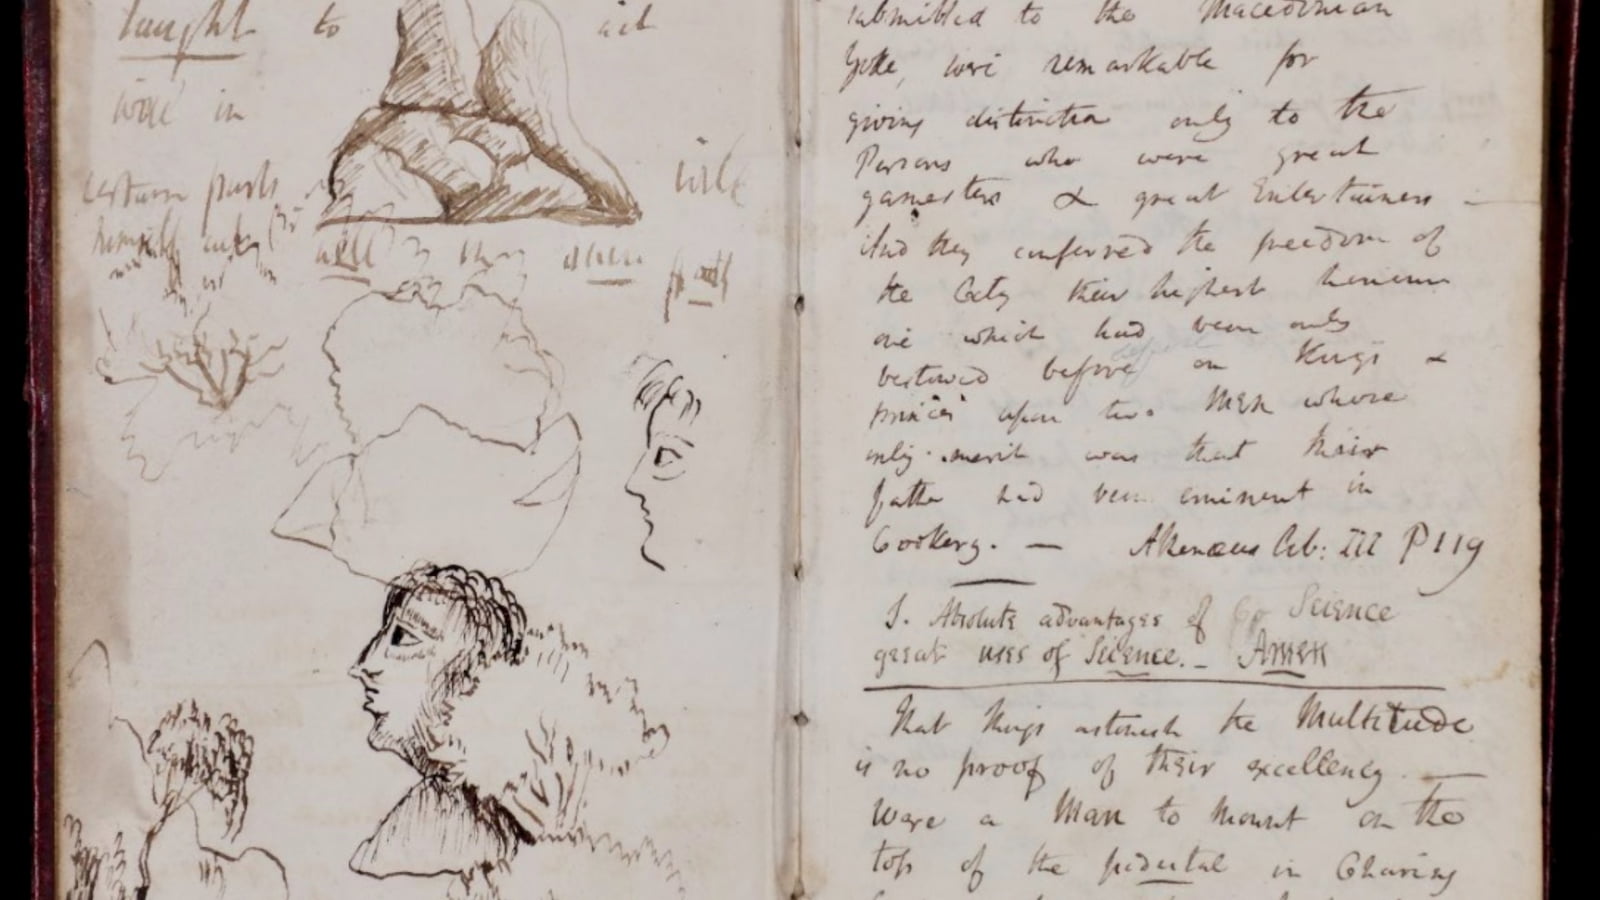 taught to act
in
certain parts
himself
well
submitted to the Macedonian
Yoke, were remarkable for
giving distinction only to the
Persons who were great
gamesters & great Entertainers –
And they conferred the freedom of
the City their highest
one which had been only
bestowed before on Kings &
princes upon two Men whose
only merit was that their
father had been eminent in
Cookery. — Athenæus Lib: III P 119
1. Absolute advantages of Science
great uses of Science. – Amen
That things astonish the Multitude
is no proof of their excellency. —
Were a Man to mount on the
top of the pedestal in Charing